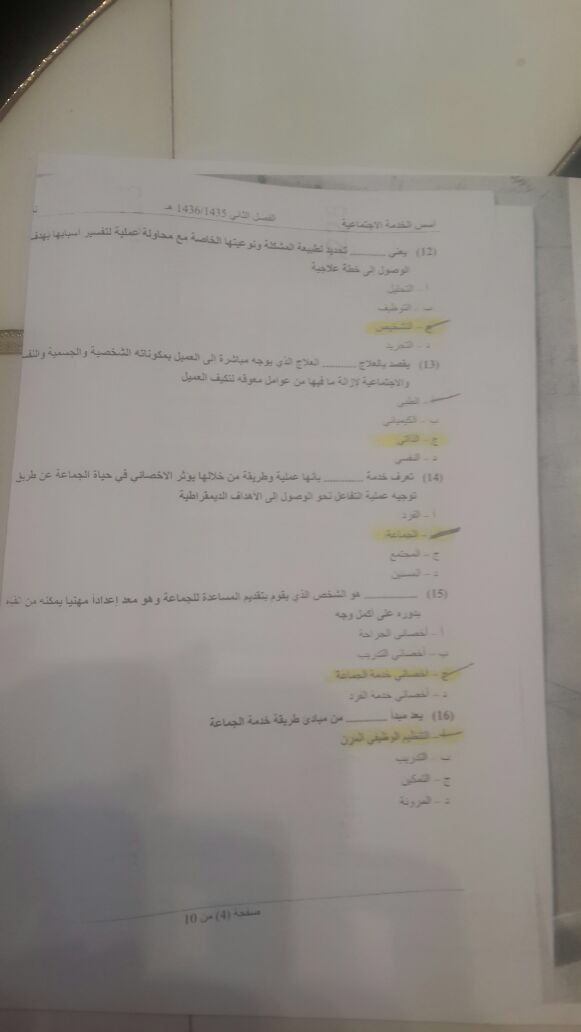 أسس الخدمة الاجتماعية الفصل الثاني 1436/1435 هـ
(12) يعني ............ تحديد لطبيعة المشكلة ونوعيتها الخاصة مع محاولة عملية لتفسير أسبابها بهدف
الوصول إلى خطة علاجية
أ – التحليل
ب – التوظيف
ج – التشخيص
د – التجريد
(13) يقصد بالعلاج ............ العلاج الذي يوجه مباشرة الى العميل بمكوناته الشخصية والجسمية
والاجتماعية لازالة ما فيها من عوامل معوقه لتكيف العميل
أ – الطبي
ب – الكيميائي
ج – الذاتي
د – النفسي
(14) تعرف خدمة ............ بأنها عملية وطريقة من خلالها يوثر الاخصائي في حياة الجماعة عن طريق
توجيه عملية التفاعل نحو الوصول إلى الأهداف الديمقراطية
أ – الفرد
– الجماعة
ج – المجتمع
د – المسنين
(15) ............ هو الشخص الذي يقوم بتقديم المساعدة للجماعة وهو معد إعدادا مهنيا يمكنه من
بدوره على أكمل وجه
أ – أخصائي الجراحة
ب – أخصائي التدريب
ج – اخصائي خدمة الجماعة
د – أخصائي خدمة الفرد
(16) يعد مبدأ ............ من مبادئ طريقة خدمة الجماعة
أ – التنظيم الوظيفي المرن
ب – التدريب
ج – التمكين
د – المرونة
صفحة (4) من 10